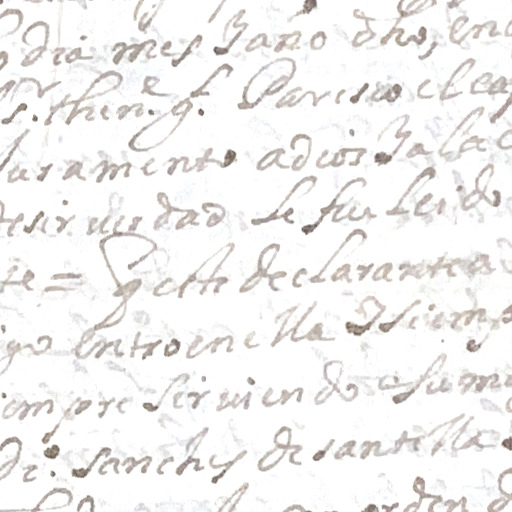 dia mes Y ano dho, en
s.r then.e g.l Parecio el ca
Juramento a dios Y a la c
desir verdad le fue leido
te = Y este declarante a
go entro en ella Y siemp
iempre sirviendo a su m
Di.o Sanches de santella
orden d